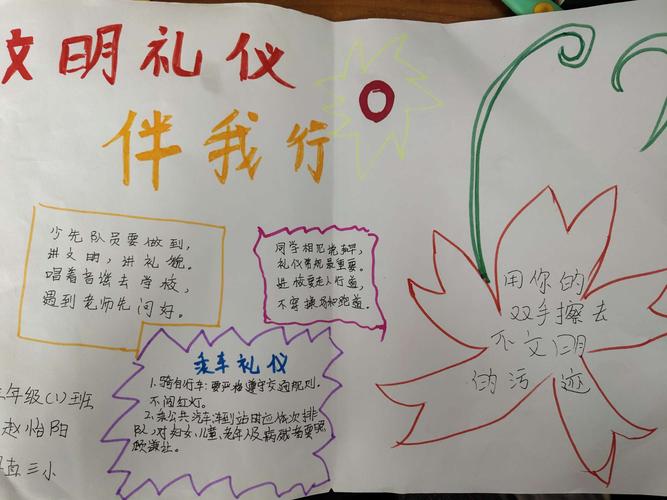 文明礼仪
伴我行
少先队员要做到,
讲文明,讲礼貌。
唱着音谣去学校,
遇到老师先问好。
同学相见说声早,
礼仪常规最重要。
进校要走人行道,
不穿操场和跑道。
乘车礼仪
1.骑自行车:要严格遵守交通规则.
不闯红灯。
2.乘公共汽车:车到站时应依次排
队,对妇女、儿童、老年人及病残者要照
顾谦让。
用你的
双手擦去
不文明
的污迹
年级(1)班
赵怡阳
三小